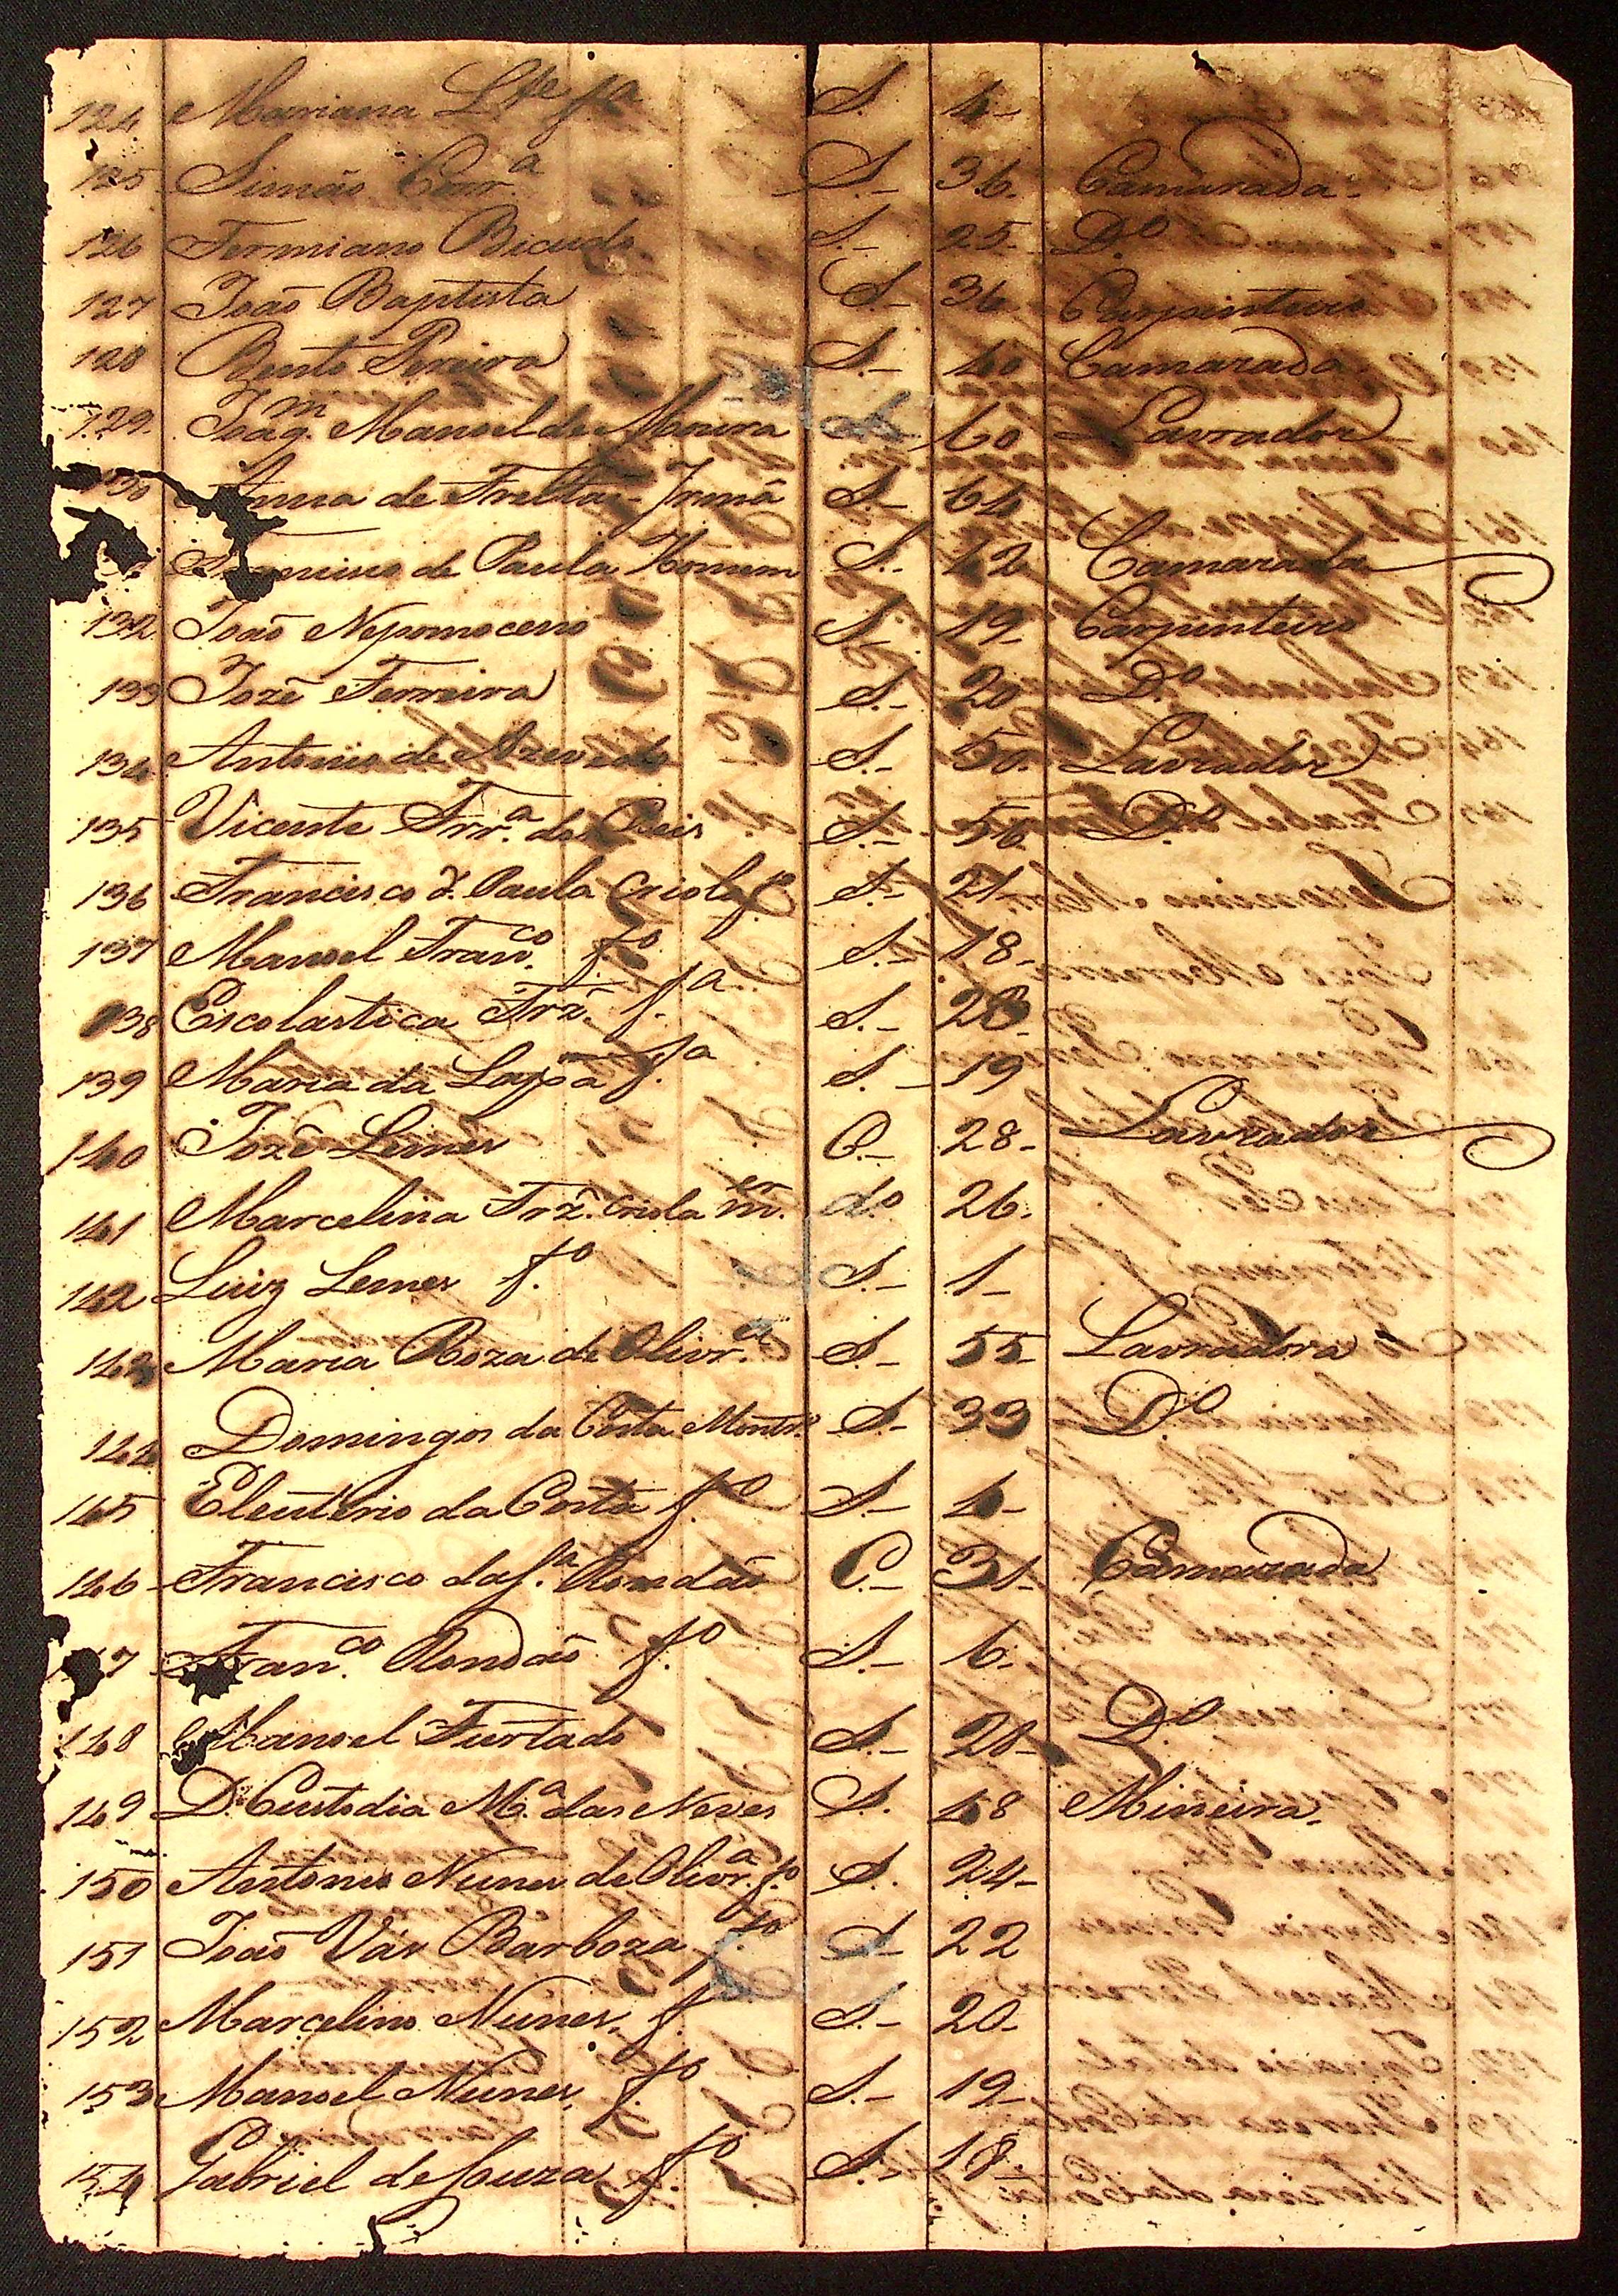 124 Mariana Lte fa S. 4-
125 Simão Corra S.- 36. Camarada.
126 Fermiano Bicudo S.- 25- Do
127 João Baptista S- 36 Carpinteiro
128 Bento Pereira S.- 40 Camarada
129. Joaqm. Manoel de Moura 60 Lavrador
130 Anna de Freitas Irmã S.- 64
de Paula Homem S.- 42 Camarada
132 João Nepomoceno S.- 19- Carpinteiro
133 Jozé Ferreira S.- 20 Do
134 Antonio de Azevedo S.- 50. Lavrador
135 Vicente Frra. dos Reis S.- 56 Do
136 Francisco d. Paula criolo S.- 21-
137 Manoel Franco. fo. S.- 18-
138 Escolastica Frz. fa. S.- 28-
139 Maria da Lapa fa. S.- 19
140 Jozé Lemes C.- 28- Lavrador
141 Marcelina Frz. criola mer. do 26.
142 Luiz Lemes fo. S.- 1-
143 Maria Roza de Olivra. S.- 55- Lavradora
144 Domingos da Costa Montro. S.- 33 Do
145 Eleutério da Costa fo. S.- 4-
146 Francisco da Sa. Rondão C.- 31- Camarada
147 Franco. Rondão fo. S.- 6.
148 Manoel Furtado S.- 28- Do
149 D. Custodia Ma. das Neves S. 48 Mineira.
150 Antonio Nunes de Olivra. fo. S. 24-
151 João Vás Barboza fo. S- 22
152 Marcelino Nunes. f. S.- 20-
153 Manoel Nunes. fo. S.- 19-
154 Gabriel de Souza fo. S.- 18-